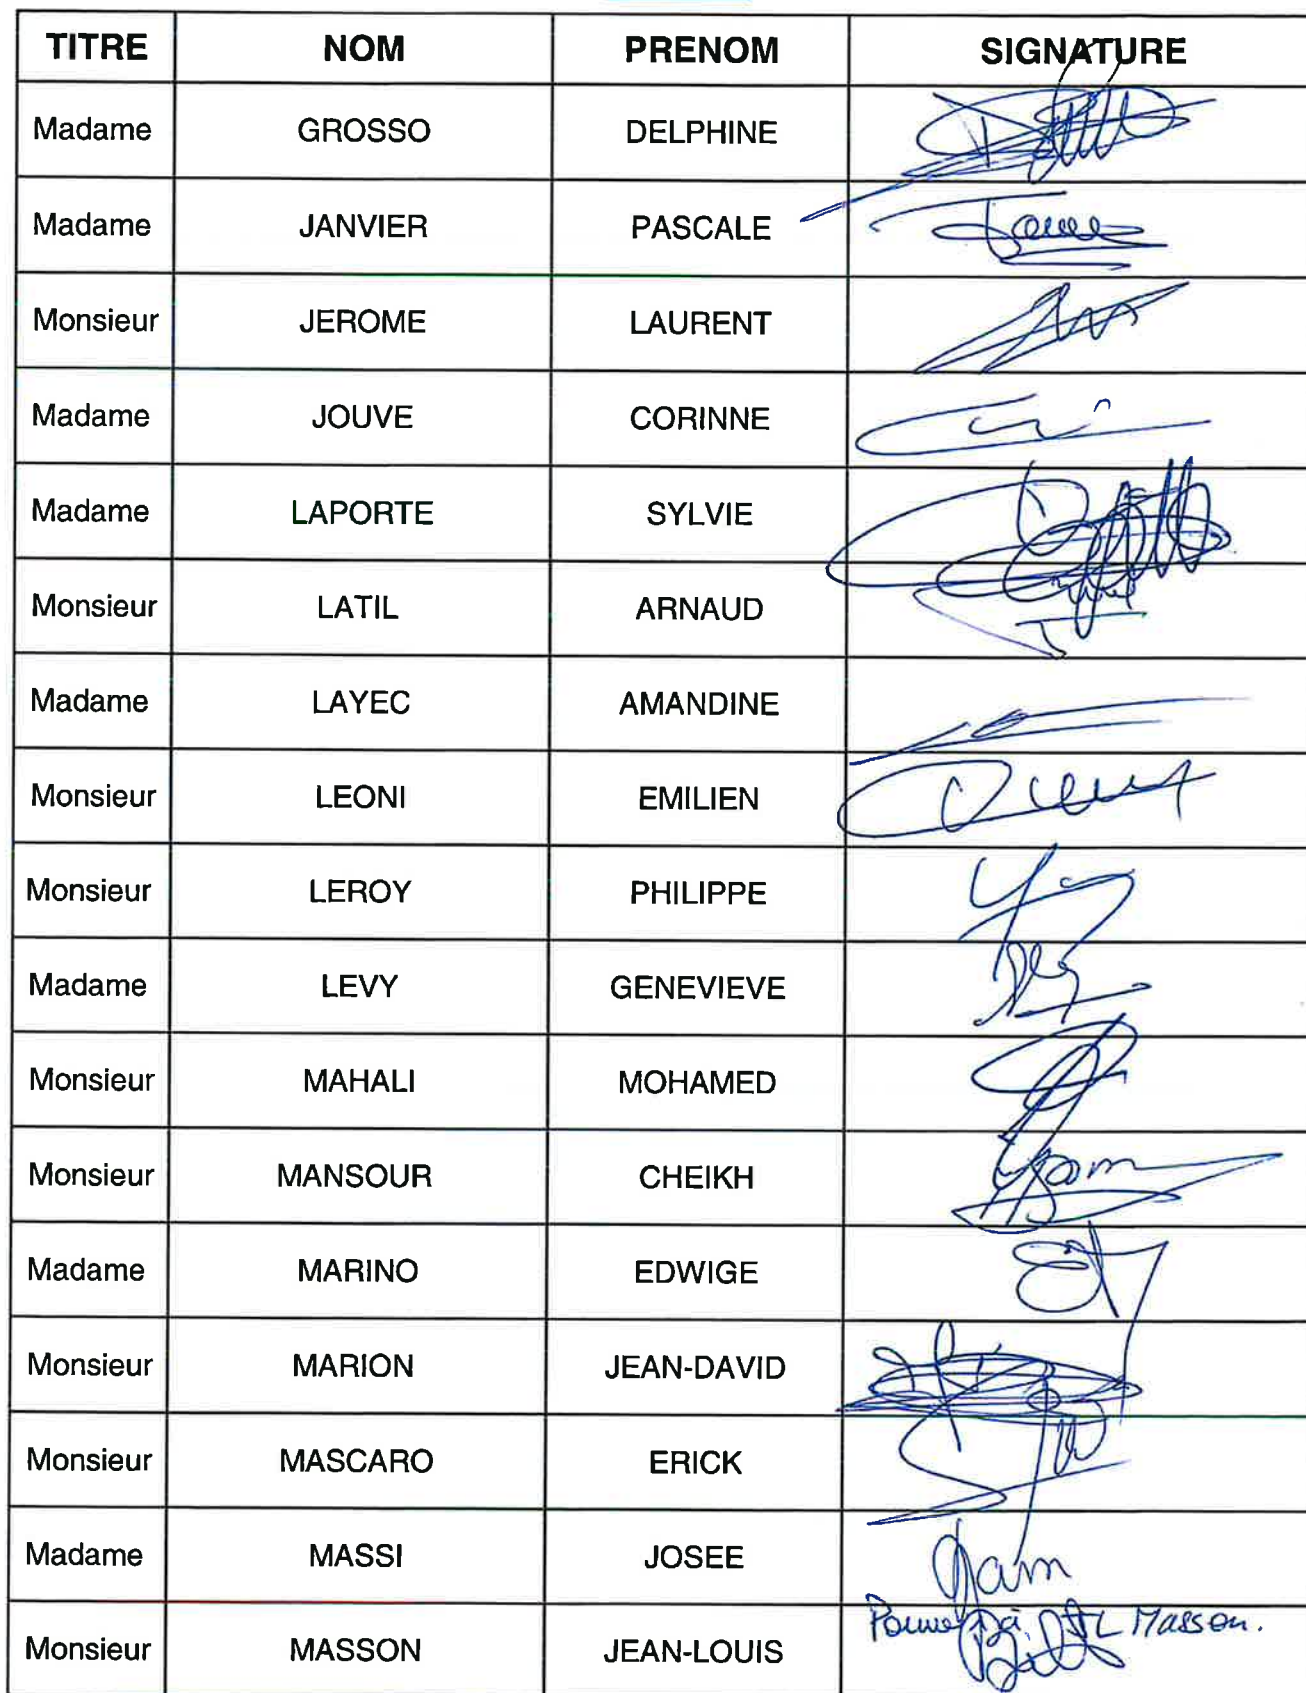 TITRE NOM PRENOM SIGNATURE
Madame GROSSO DELPHINE
Madame JANVIER PASCALE
Monsieur JEROME LAURENT
Madame JOUVE CORINNE
Madame LAPORTE SYLVIE
Monsieur LATIL ARNAUD
Madame LAYEC AMANDINE
Monsieur LEONI EMILIEN
Monsieur LEROY PHILIPPE
Madame LEVY GENEVIEVE
Monsieur MAHALI MOHAMED
Monsieur MANSOUR CHEIKH
Madame MARINO EDWIGE
Monsieur MARION JEAN-DAVID
Monsieur MASCARO ERICK
Madame MASSI JOSEE
à JL Masson.
Monsieur MASSON JEAN-LOUIS